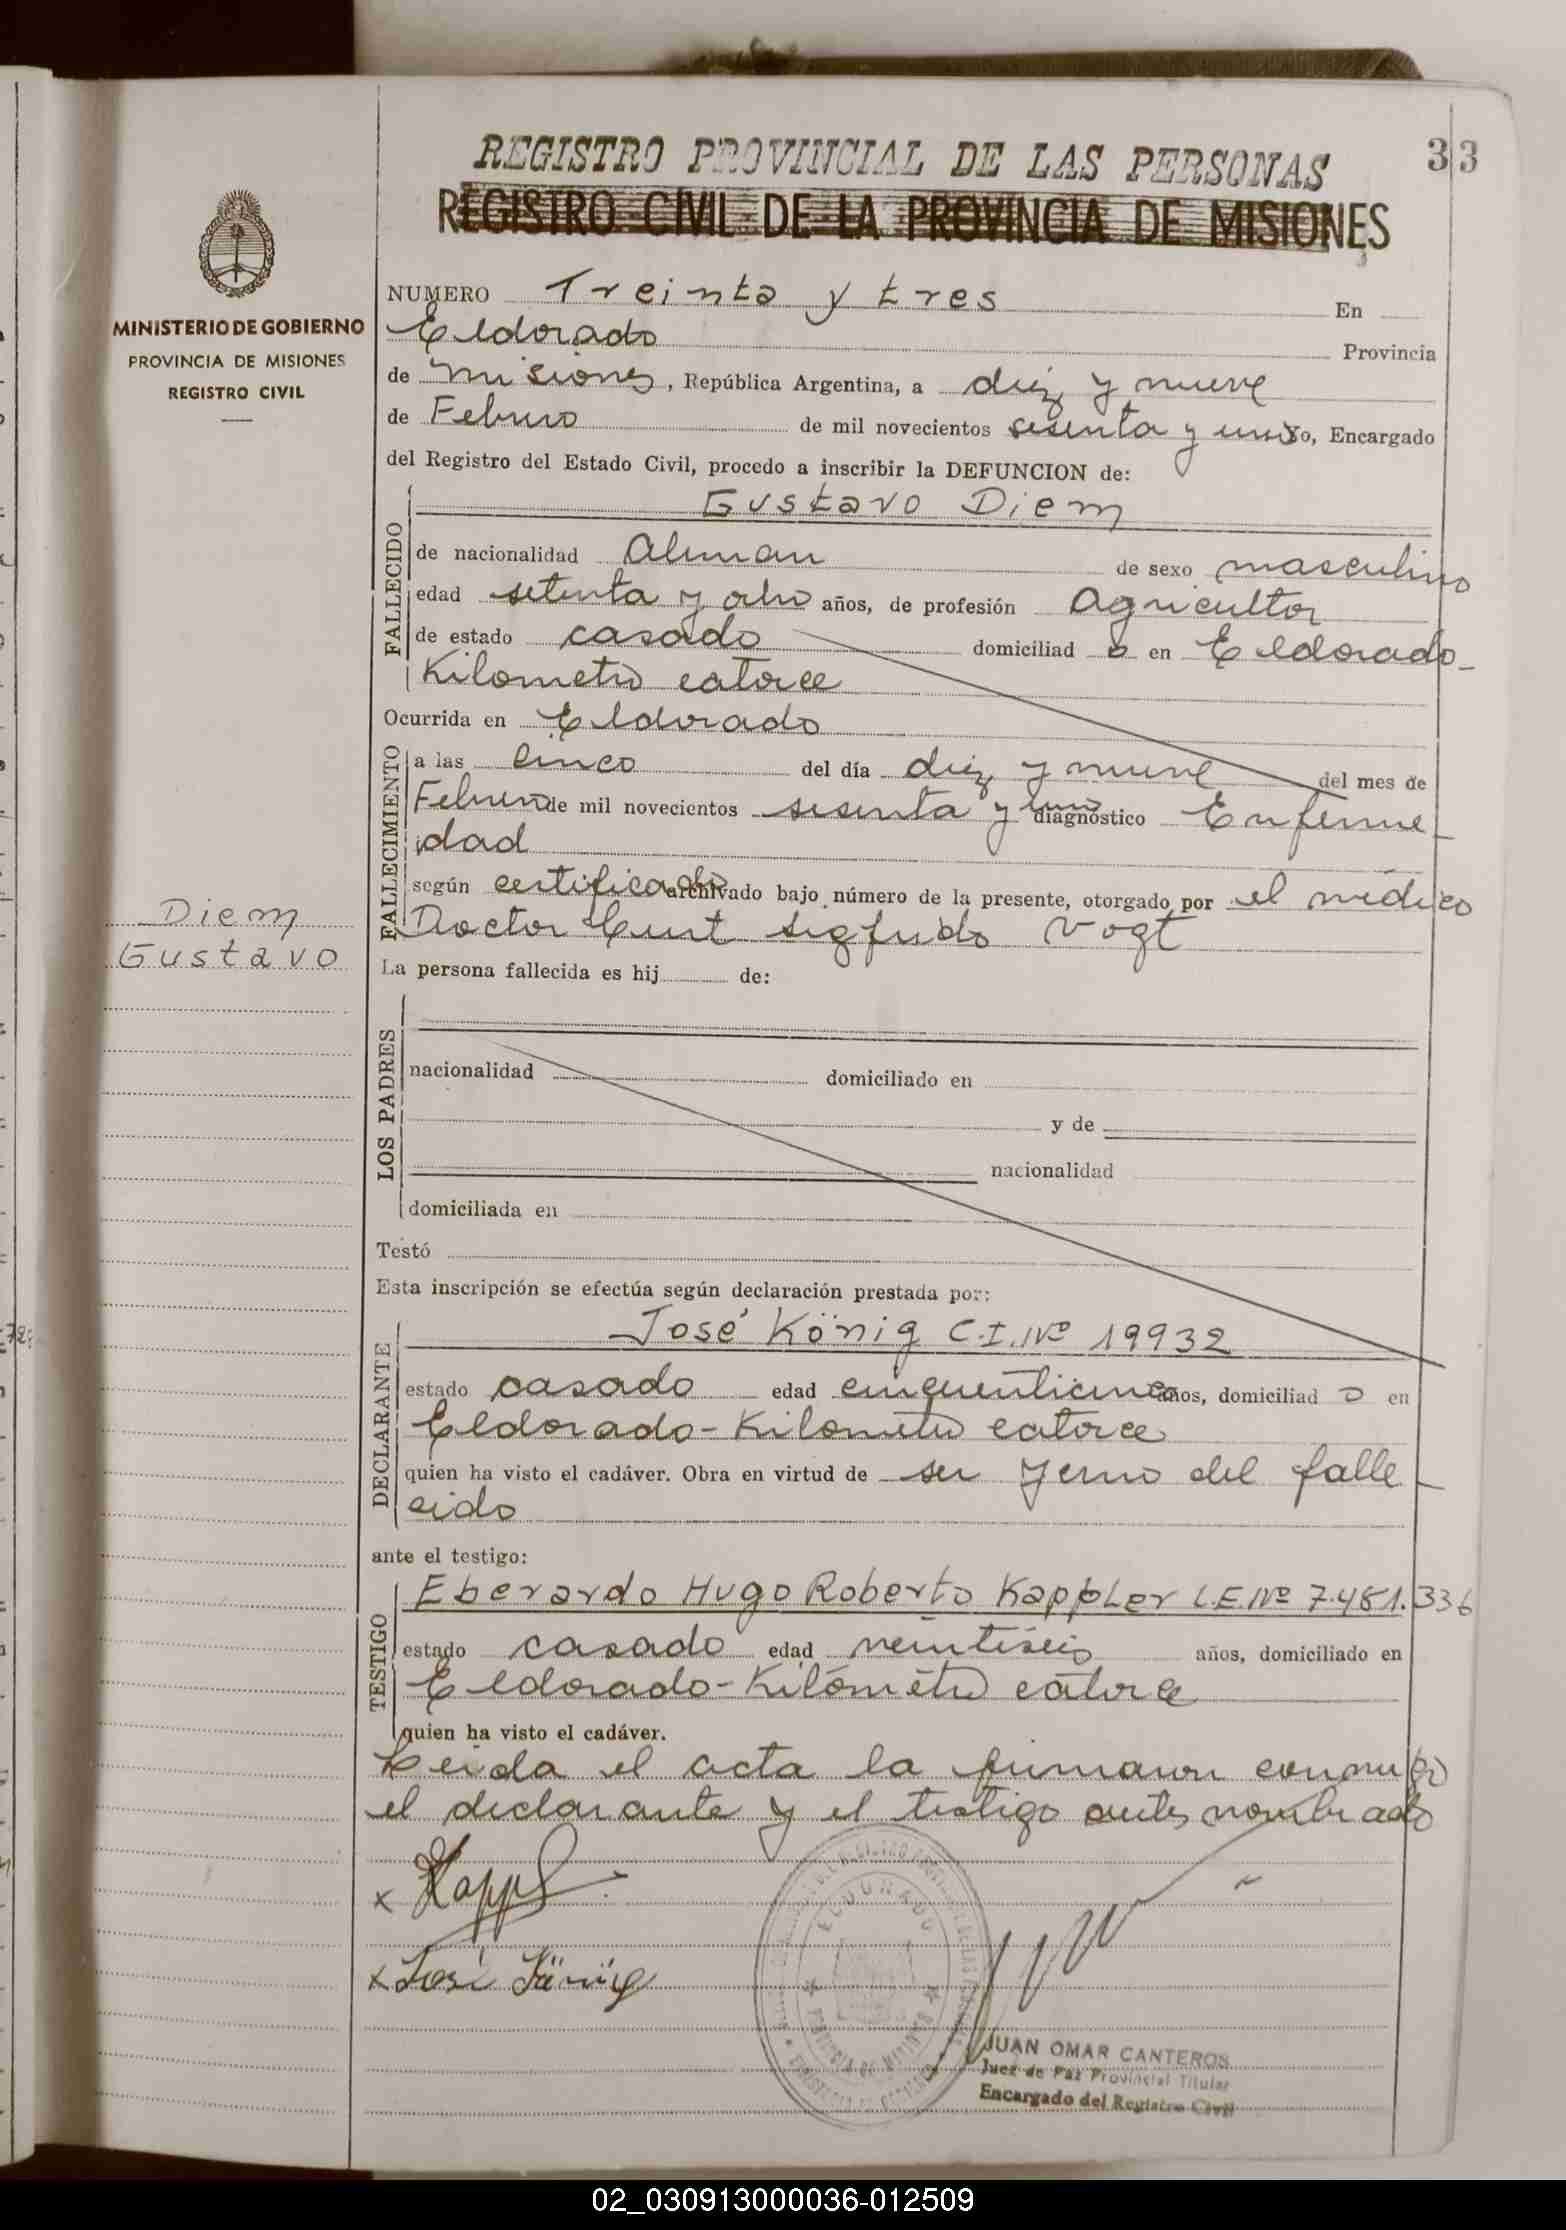 33
REGISTRO PROVINCIAL DE LAS PERSONAS
REGISTRO CIVIL DE LA PROVINCIA DE MISIONES
MINISTERIO DE GOBIERNO
PROVINCIA DE MISIONES
REGISTRO CIVIL
Diem
Gustavo
NUMERO Treinta y tres En
Eldorado Provincia
de Misiones, República Argentina, a diez y nueve
de Febrero de mil novecientos sesenta y uno Yo, Encargado
del Registro del Estado Civil, procedo a inscribir la DEFUNCION de:
FALLECIDO
Gustavo Diem
de nacionalidad Aleman de sexo masculino
edad setenta y ocho años, de profesión Agricultor
de estado casado domiciliad o en Eldorado-
Kilometro catorce
Ocurrida en Eldorado
FALLECIMIENTO
a las cinco del día diez y nueve del mes de
Febrero de mil novecientos sesenta y uno diagnóstico Enferme-
dad
según certificado archivado bajo número de la presente, otorgado por el médico
Doctor Curt Sigfrido Vogt
La persona fallecida es hij de:
LOS PADRES
nacionalidad domiciliado en
y de
nacionalidad
domiciliada en
Testó
Esta inscripción se efectúa según declaración prestada por:
DECLARANTE
José König C.I. Nº 19932
estado casado edad años, domiciliad o en
Eldorado-Kilometro catorce
quien ha visto el cadáver. Obra en virtud de ser yerno del falle-
cido
ante el testigo:
TESTIGO
Eberardo Hugo Roberto Kappler L.E. Nº 7.481.336
estado casado edad veintiseis años, domiciliado en
Eldorado-Kilómetro catorce
quien ha visto el cadáver.
Leida el acta la firmaron conmigo
el declarante y el testigo antes nombrado
x Kappl
x José König
ELDORADO
PROVINCIA DE MISIONES
JUAN OMAR CANTEROS
Juez de Paz Provincial Titular
Encargado del Registro Civil
02_030913000036-012509